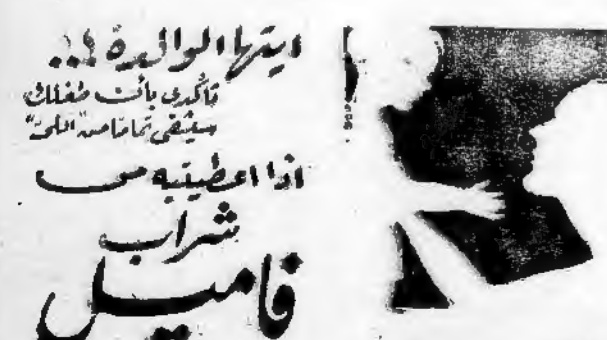 ايتها الوالدة !..
تأكدي بأن طفلك
سيشفى تماما من
اذا اعطيته من
شراب
فاميل